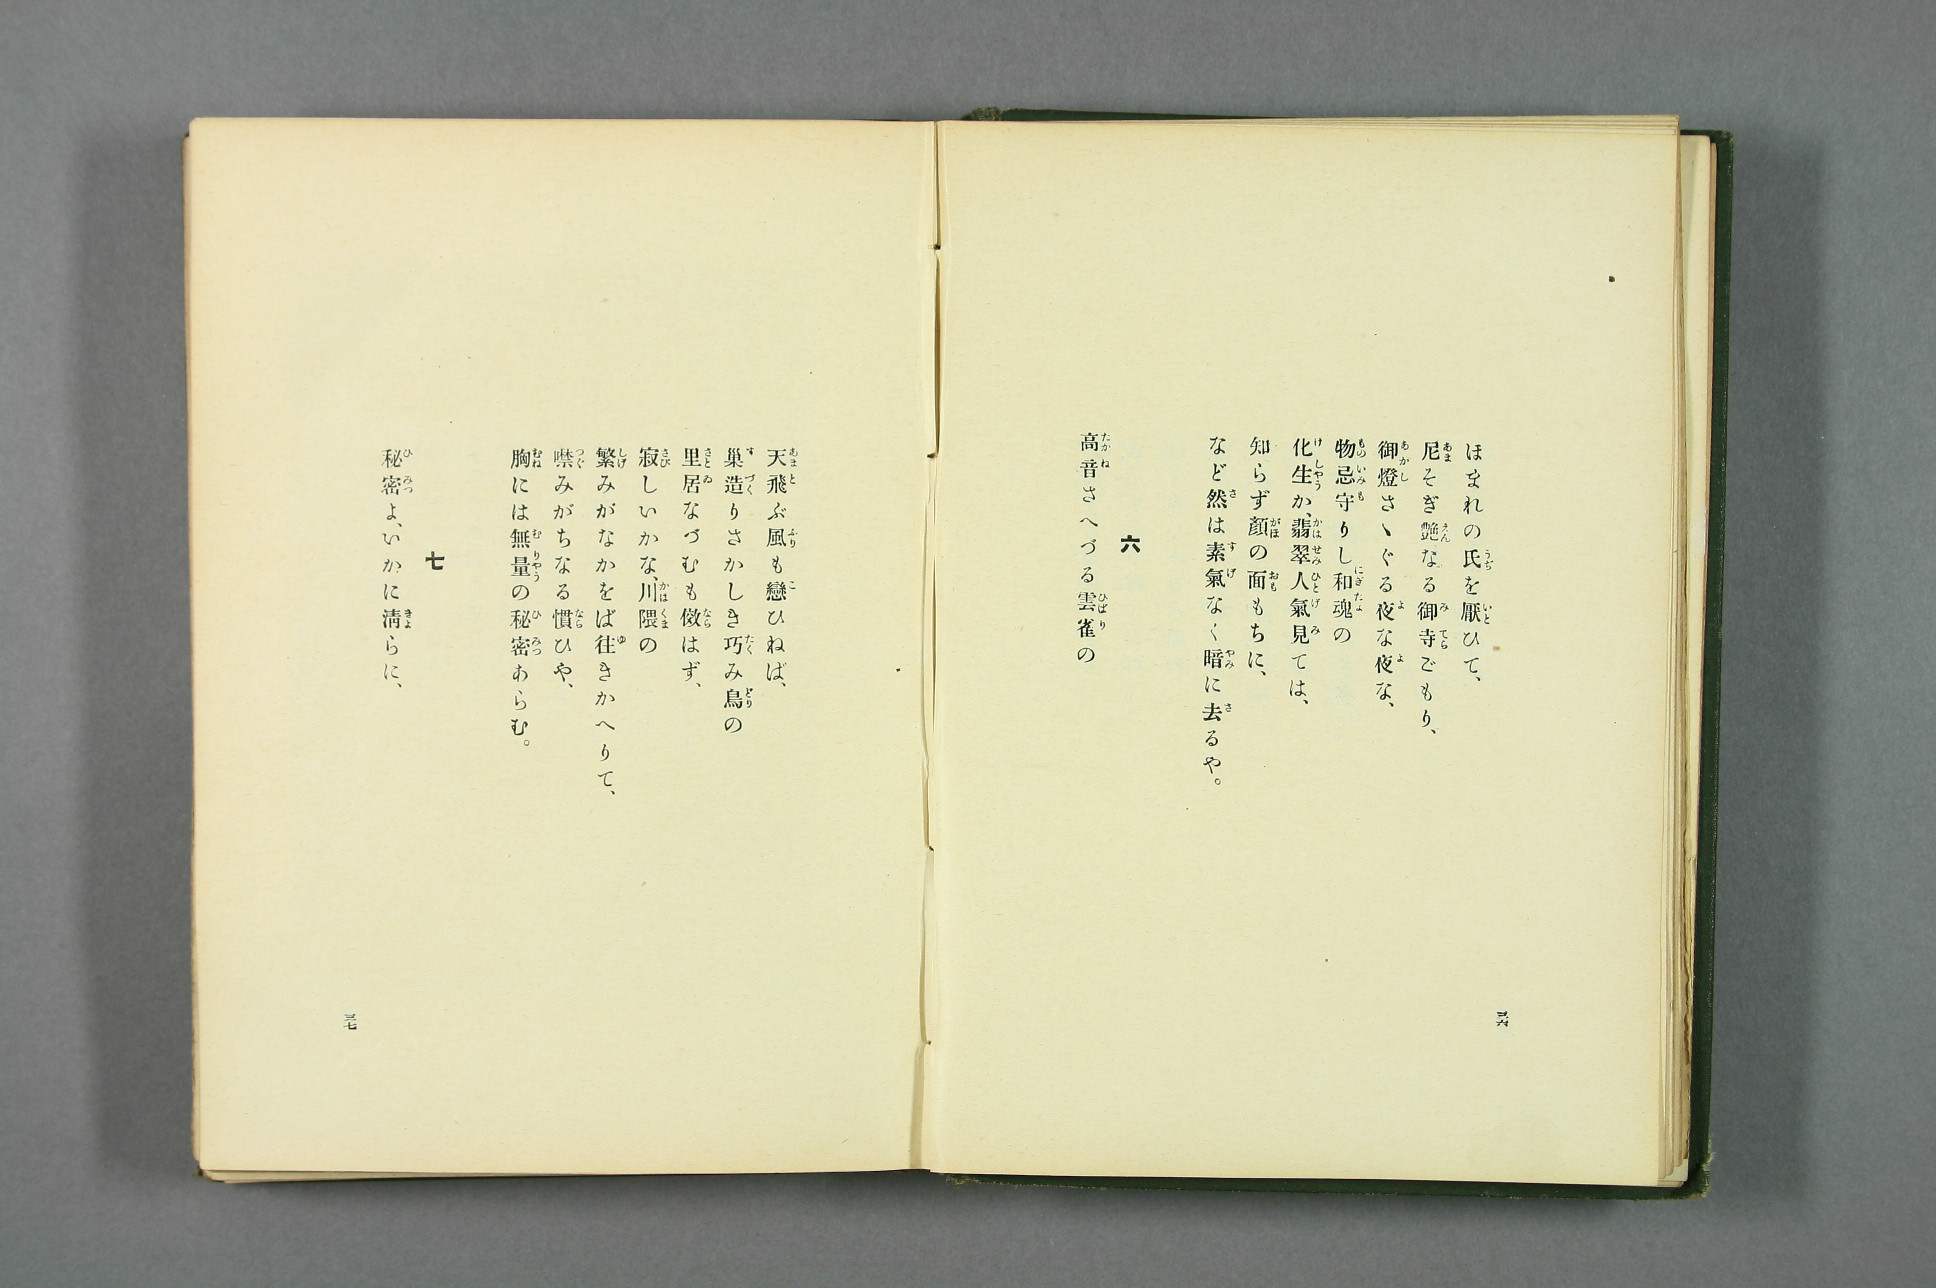 ほまれの氏を厭ひて、
尼そぎ艶なる御寺ごもり、
御燈さゝぐる夜な夜な、
物忌守りし和魂の
化生か、翡翠人氣見ては、
知らず顏の面もちに、
など然は素氣なく暗に去るや。
六
高音さへづる雲雀の
三六
天飛ぶ風も戀ひねば、
巣造りさかしき巧み鳥の
里居なづむも傚はず、
寂しいかな、川隈の
繁みがなかをば徃きかへりて、
噤みがちなる慣ひや、
胸には無量の秘密あらむ。
七
秘密よ、いかに淸らに、
三七